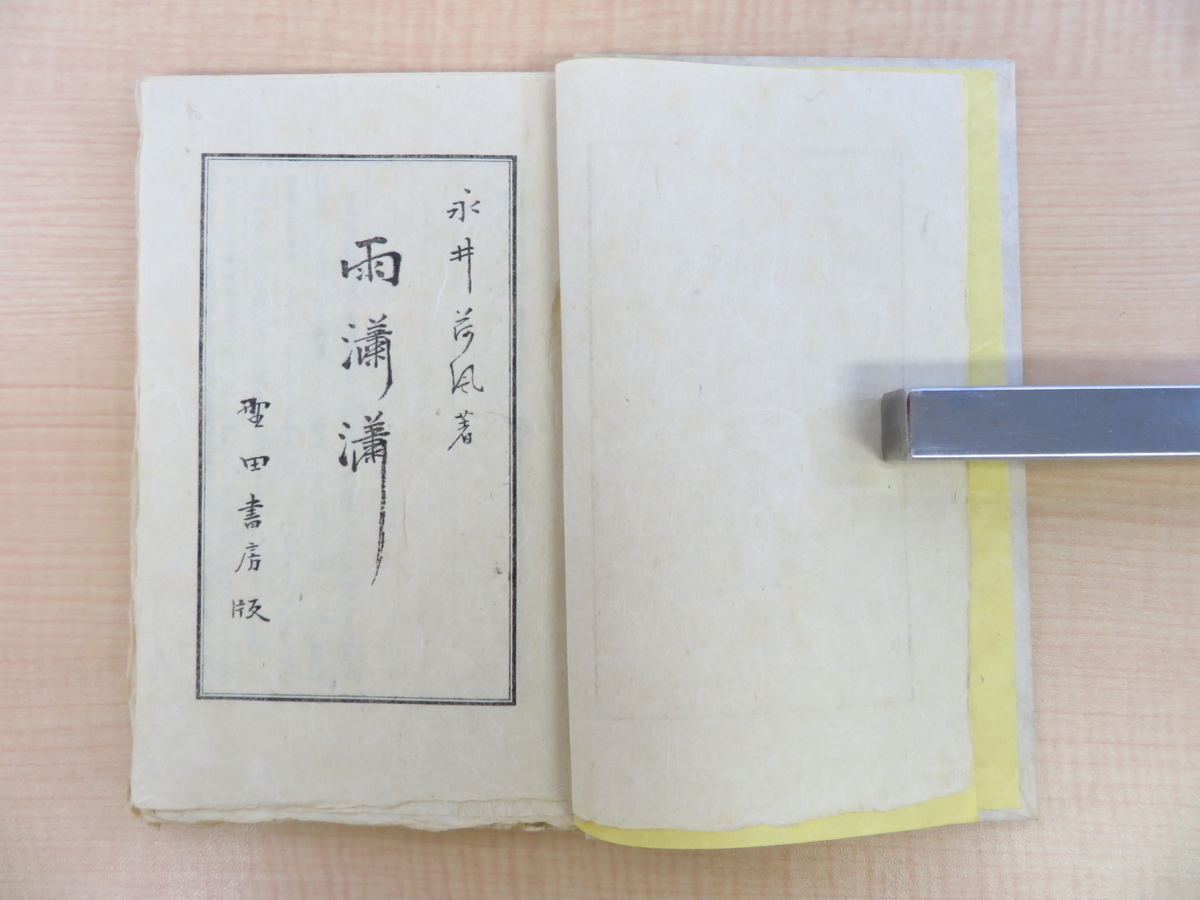 永井荷風著
雨瀟瀟
野田書房版